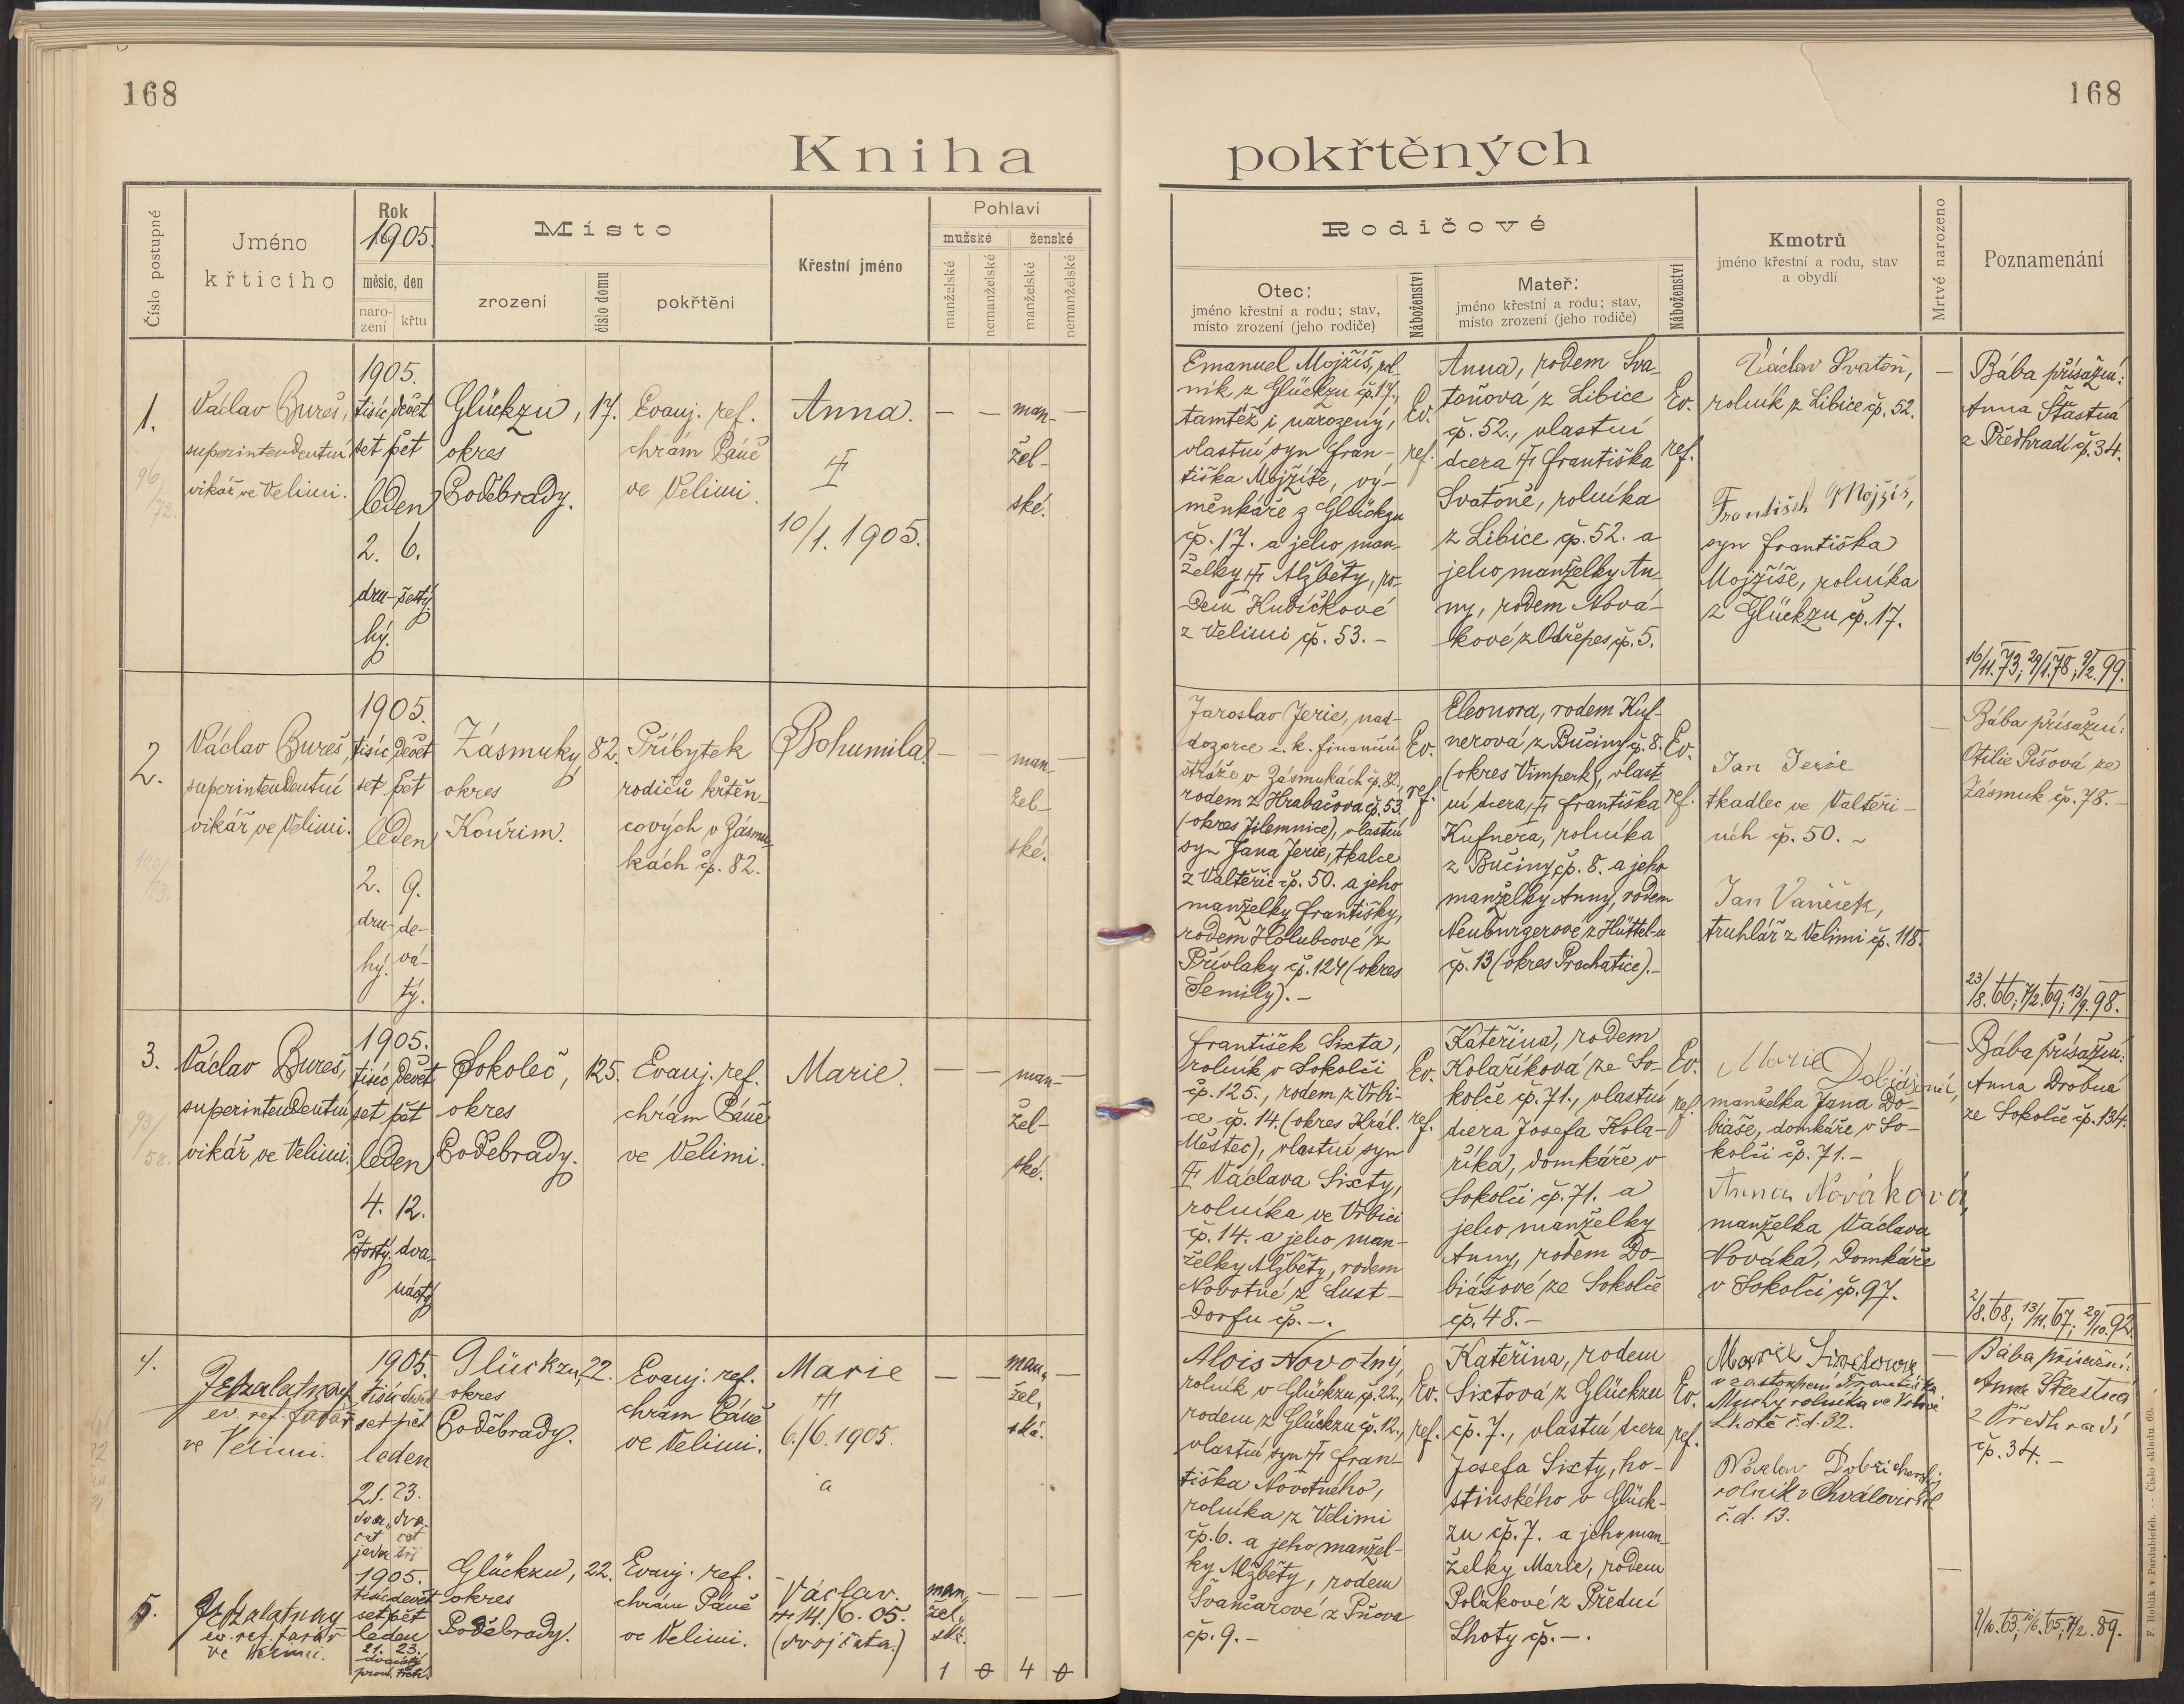 168
168
Kniha
pokřtěných
Číslo postupné
Jméno
křticího
Rok
1905.
měsíc, den
naro-
zení
křtu
Místo
zrození
číslo domu
pokřtění
Křestní jméno
Pohlaví
mužské
ženské
manželské
nemanželské
manželské
nemanželské
Rodičové
Otec:
jméno křestní a rodu; stav,
místo zrození (jeho rodiče)
Náboženství
Mateř:
jméno křestní a rodu; stav,
místo zrození (jeho rodiče)
Náboženství
Kmotrů
jméno křestní a rodu, stav
a obydlí
Mrtvé narozeno
Poznamenání
1.
96/
72.
Václav Bureš,
superintendentní
vikář ve Velimi.
1905.
tisíc devět
set pět
leden
2. 6.
dru- šestý
hý.
Glückzu,
okres
Poděbrady.
17.
Evanj. ref.
chrám Páně
ve Velimi.
Anna.
10/1. 1905.
— — man- —
žel-
ské.
Emanuel Mojžíš, rol-
ník z Glückzu čp. 17.,
tamtéž i narozený,
vlastní syn Fran-
tiška Mojžíše, vý-
měnkáře z Glückzu
čp. 17. a jeho man-
želky Alžběty, ro-
dem Kubíčkové
z Velimi čp. 53. -
Ev.
ref.
Anna, rodem Sva-
toňová z Libice
čp. 52., vlastní
dcera Františka
Svatoně, rolníka
z Libice čp. 52. a
jeho manželky An-
ny, rodem Nová-
kové z Odřepes čp. 5.
Ev.
ref.
Václav Svatoň,
rolník z Libice čp. 52.
František Mojžíš,
syn Františka
Mojžíše, rolníka
z Glückzu čp. 17.
—
Bába přísežní:
Anna Šťastná
z Předhradí čp. 34.
16/11. 73; 29/1. 78; 9/2. 99.
2.
120/
23.
Václav Bureš,
superintendentní
vikář ve Velimi.
1905.
tisíc devět
set pět
leden
2. 9.
dru- de-
hý. vá-
tý.
Zásmuky
okres
Kouřim.
82.
Příbytek
rodičů křtěn-
cových v Zásmu-
kách čp. 82.
Bohumila.
— — man- —
žel-
ské.
Jaroslav Jerie, nad-
dozorce c. k. finanční
stráže v Zásmukách čp. 82.,
rodem z Hrabačova čp. 53
(okres Jilemnice), vlastní
syn Jana Jerie, tkalce
z Valtěřic čp. 50. a jeho
manželky Františky,
rodem Holubcové z
Přívlaky čp. 124 (okres
Semily). -
Ev.
ref.
Eleonora, rodem Kuf-
nerová z Bučiny čp. 8.
(okres Vimperk), vlast-
ní dcera Františka
Kufnera, rolníka
z Bučiny čp. 8. a jeho
manželky Anny, rodem
Neuburgerové z Hüttel-u
čp. 13 (okres Prachatice). -
Ev.
ref.
Jan Jerie
tkadlec ve Valtěři-
cích čp. 50. -
Jan Vaníček,
truhlář z Velimi čp. 118.
—
Bába přísežní:
Otilie Píšová ze
Zásmuk čp. 78. -
23/8. 66; 7/2. 69; 13/9. 98.
3.
93/
58.
Václav Bureš,
superintendentní
vikář ve Velimi.
1905.
tisíc devět
set pět
leden
4. 12.
čtvrtý. dva-
náctý
Sokoleč,
okres
Poděbrady.
125.
Evanj. ref.
chrám Páně
ve Velimi.
Marie.
— — man- —
žel-
ské.
František Sixta,
rolník v Sokolči
čp. 125., rodem z Vrbi-
ce čp. 14. (okres Král.
Městec), vlastní syn
Václava Sixty,
rolníka ve Vrbici
čp. 14. a jeho man-
želky Alžběty, rodem
Novotné z Lust-
dorfu čp. -.
Ev.
ref.
Kateřina, rodem
Kolaříková ze So-
kolče čp. 71., vlastní
dcera Josefa Kola-
říka, domkáře v
Sokolči čp. 71. a
jeho manželky
Anny, rodem Do-
biášové ze Sokolče
čp. 48. -
Ev.
ref.
Marie Dobiášová,
manželka Jana Do-
biáše, domkáře v So-
kolči čp. 71. -
Anna Nováková,
manželka Václava
Nováka, domkáře
v Sokolči čp. 97.
—
Bába přísežní:
Anna Drobná
ze Sokolče čp. 134.
2/8. 68; 13/11. 67; 29/10. 92.
4.
ev. ref. farář
ve Velimi.
1905.
tisíc devět
set pět
leden
21. 23.
dva- dva-
cet cet
jeden tři
Glückzu,
okres
Poděbrady.
22.
Evanj. ref.
chrám Páně
ve Velimi.
Marie
6./6. 1905.
a
— — man- —
žel-
ská.
Alois Novotný,
rolník v Glückzu čp. 22.,
rodem z Glückzu čp. 12.,
vlastní syn Fran-
tiška Novotného,
rolníka z Velimi
čp. 6. a jeho manžel-
ky Alžběty, rodem
Švančarové z Pňova
čp. 9. -
Ev.
ref.
Kateřina, rodem
Sixtová z Glückzu
čp. 7., vlastní dcera
Josefa Sixty, ho-
stinského v Glück-
zu čp. 7. a jeho man-
želky Marie, rodem
Polákové z Přední
Lhoty čp. -.
Ev.
ref.
Marie
v zastoupení Františka
rolníka ve
Lhotě č.d. 32.
Václav
rolník v Chvalovicích
č.d. 13.
—
Bába přísežní:
Anna Šťastná
z Předhradí
čp. 34. -
5.
ev. ref. farář
ve Velimi.
1905.
tisíc devět
set pět
leden
21. 23.
Glückzu,
okres
Poděbrady.
22.
Evanj. ref.
chrám Páně
ve Velimi.
Václav.
14./6. 05.
(dvojčata.)
man- — — —
žel-
ské.
—
1 0 4 0
9/10. 63; 10/6. 65; 7/2. 89.
F. Hoblík v Pardubicích. — Číslo skladu 60.